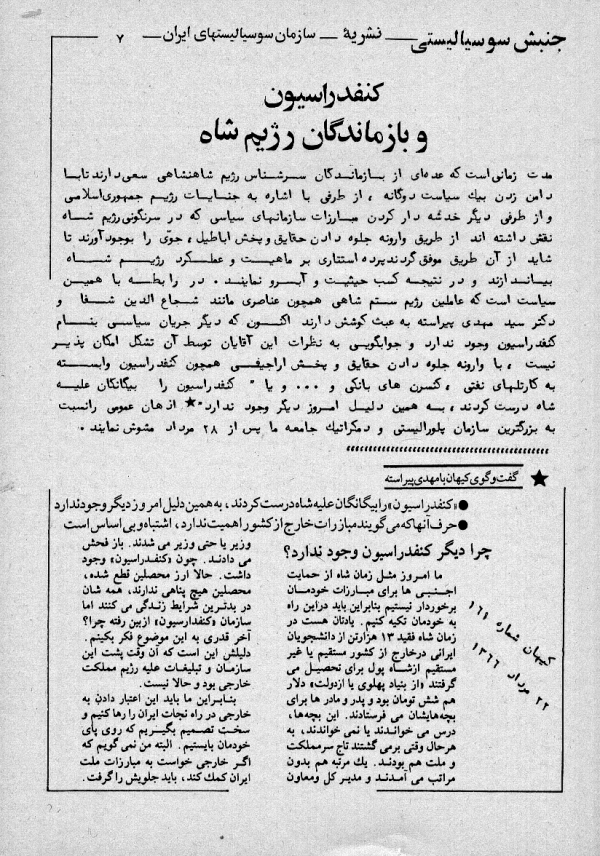 جنبش سوسیالیستی — نشریهٔ — سازمان سوسیالیستهای ایران — ۷
کنفدراسیون
و بازماندگان رژیم شاه
مدت زمانی است که عده‌ای از بازماندگان سرشناس رژیم شاهنشاهی سعی دارند تا با
دامن زدن بیک سیاست دوگانه ، از طرفی با اشاره به جنایات رژیم جمهوری اسلامی
و از طرفی دیگر خدشه دار کردن مبارزات سازمانهای سیاسی که در سرنگونی رژیم شاه
نقش داشته اند از طریق وارونه جلوه دادن حقایق و پخش اباطیل ، جوّی را بوجود آورند تا
شاید از آن طریق موفق گردند پرده استتاری بر ماهیت و عملکرد رژیم شاه
بیاندازند و در نتیجه کسب حیثیت و آبرو نمایند . در رابطه با همین
سیاست است که عاملین رژیم ستم شاهی همچون عناصری مانند شجاع الدین شفا و
دکتر سید مهدی پیراسته به عبث کوشش دارند اکنون که دیگر جریان سیاسی بنام
کنفدراسیون وجود ندارد و جوابگویی به نظرات این آقایان توسط آن تشکل امکان پذیر
نیست ، با وارونه جلوه دادن حقایق و پخش اراجیفی همچون کنفدراسیون وابسته
به کارتلهای نفتی ، کنسرن های بانکی و ... و یا " کنفدراسیون را بیگانگان علیه
شاه درست کردند ، به همین دلیل امروز دیگر وجود ندارد "★ اذهان عمومی را نسبت
به بزرگترین سازمان پلورالیستی و دمکراتیک جامعه ما پس از ۲۸ مرداد مشوش نمایند .
★ گفت و گوی کیهان با مهدی پیراسته
● «کنفدراسیون» را بیگانگان علیه شاه درست کردند، به همین دلیل امروز دیگر وجود ندارد
● حرف آنها که می‌گویند مبارزات خارج از کشور اهمیت ندارد، اشتباه و بی اساس است
چرا دیگر کنفدراسیون وجود ندارد؟
ما امروز مثل زمان شاه از حمایت
اجنبی ها برای مبارزات خودمان
برخوردار نیستیم بنابراین باید در این راه
به خودمان تکیه کنیم. یادتان هست در
زمان شاه فقید ۱۳ هزارتن از دانشجویان
ایرانی درخارج از کشور مستقیم یا غیر
مستقیم ازشاه پول برای تحصیل می
گرفتند «از بنیاد پهلوی یا ازدولت» دلار
هم شش تومان بود و پدر و مادر ها برای
بچه‌هایشان می فرستادند. این بچه‌ها،
درس می خواندند یا نمی خواندند، به
هرحال وقتی برمی گشتند تاج سرمملکت
و ملت هم بودند. یك مرتبه هم بدون
مراتب می آمدند و مدیر کل ومعاون
وزیر یا حتی وزیر می شدند. باز فحش
می دادند. چون «کنفدراسیون» وجود
داشت. حالا ارز محصلین قطع شده،
محصلین هیچ پناهی ندارند، همه شان
در بدترین شرایط زندگی می کنند اما
سازمان «کنفدارسیون» ازبین رفته چرا؟
آخر قدری به این موضوع فکر بکنیم.
دلیلش این است که آن وقت پشت این
سازمان و تبلیغات علیه رژیم مملکت
خارجی بود و حالا نیست.
بنابراین ما باید این اعتبار دادن به
خارجی در راه نجات ایران را رها کنیم و
سخت تصمیم بگیریم که روی پای
خودمان بایستیم. البته من نمی گویم که
اگر خارجی خواست به مبارزات ملت
ایران کمك کند، باید جلویش را گرفت.
کیهان شماره ۱۶۱
۲۲ مرداد ۱۳۶۶